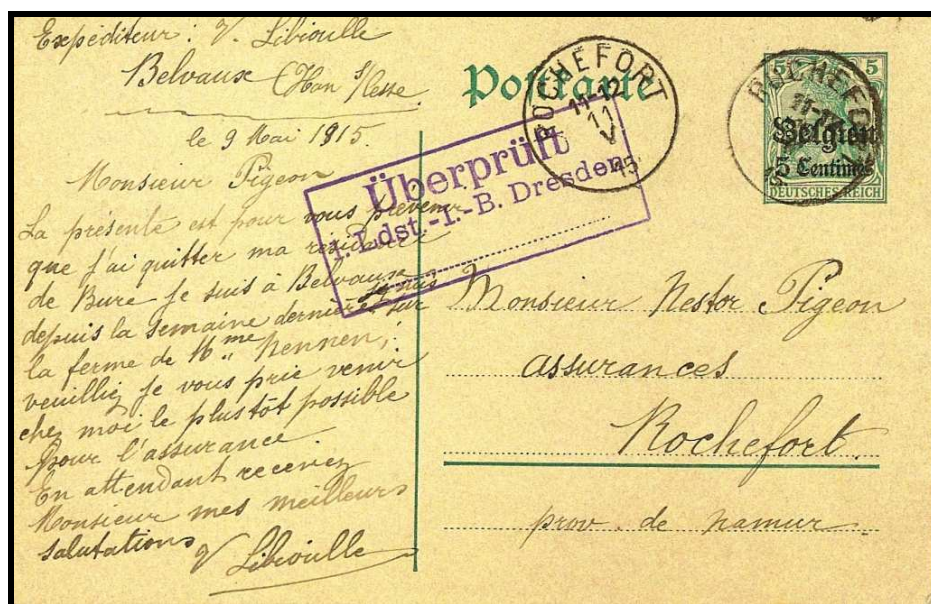 Expéditeur : V. Libioulle
Belvaux (Han s/Lesse
le 9 Mai 1915.
Monsieur Pigeon
La présente est pour vous prévenir
que j'ai quitter ma résidence
de Bure je suis à Belvaux
depuis la semaine dernière sur
la ferme de Mme Nennen,
veuilliez je vous prie venir
chez moi le plus tôt possible
pour l'assurance.
En attendant recevez
Monsieur mes meilleurs
salutations
V Libioulle
Postkarte
ROCHEFORT
11-12
11
V
15
Überprüft
1.Ldst.-I.-B. Dresden
ROCHEFORT
11-12
5 5
Belgien
5 Centimes
DEUTSCHES REICH
Monsieur Nestor Pigeon
assurances
Rochefort.
prov. de namur